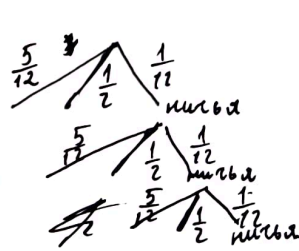 5/12 1/2 1/12
ничья
5/12 1/2 1/12
ничья
5/12 1/2 1/12
ничья